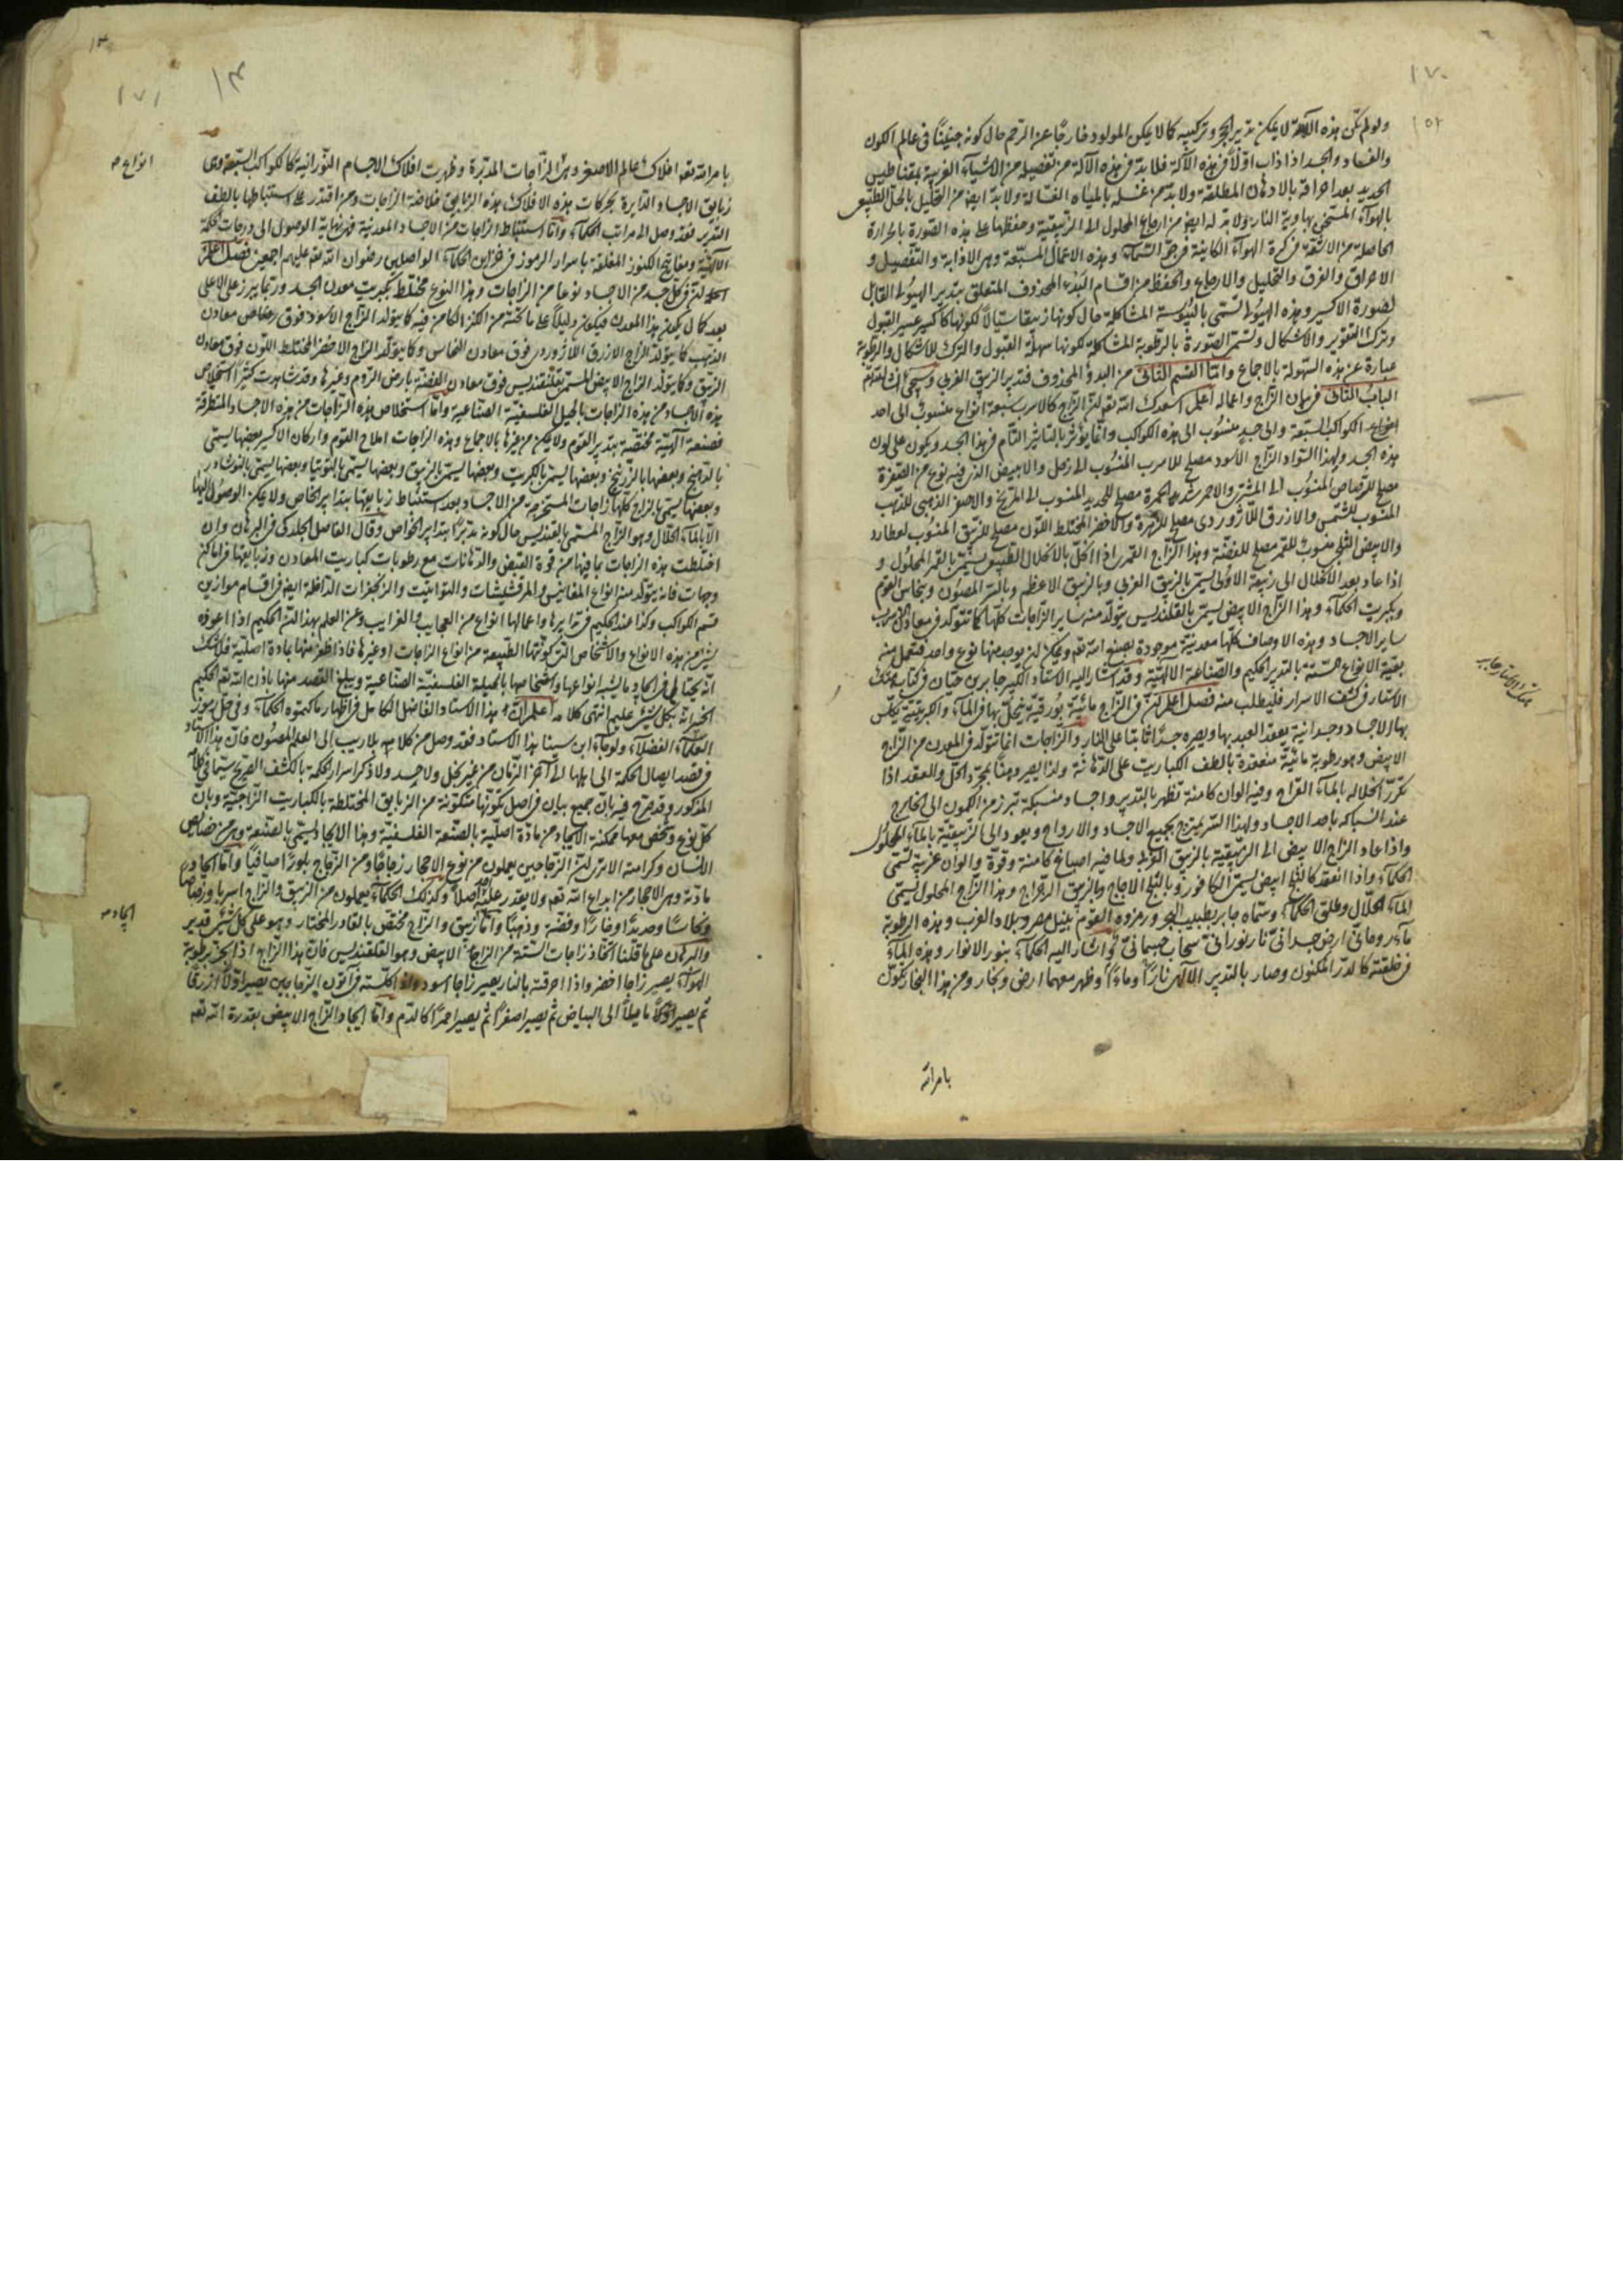 ١٧٠
١٥٢
ولو لم تكن هذه الآلة لا يمكن تدبير الحجر وتركيبه كما لا يمكن المولود خارجًا عن الرحم حال كونه جنينًا في عالم الكون
والفساد والجسد اذا ذاب اوّلاً في هذه الآلة فلا بدّ في هذه الآلة من تفصيله من الاشياء الغريبة بمقناطيس
الحديد بعد احراقه بالادهان المطلقة ولا بدّ من غسله بالمياه الغسّالة ولا بدّ ايضا من التحليل بالحلّ الطبيعي
بالهواء المستجن بهاوية النار ولا بد له ايضا من ارجاع المحلول الى الزيبقية وحفظها على هذه الصّورة بالحرارة
الحاصلة من الاشعّة في كرة الهواء الكاينة في جوّ السّماء وهذه الاعمال المسبّعة وهي الاذابة والتفصيل و
الاحراق والغرق والتحليل والارجاع والحفظ من اقسام البَدْء المحذوف المتعلق بتدبير الهيولى القابل
لصورة الاكسير وهذه الهيولى تسمّى باليبوسة المشاكلة حال كونها زيبقا سيّالاً لكونها كاكسير عسير القبول
وترك التقوير والاشكال وتسمّى الصّورة بالرطوبة المشاكلة لكونها سهلة القبول والترك للاشكال والرطوبة
عبارة عن هذه السّهولة بالاجماع وامّا القسم الثاني من البدؤ المحذوف فتدبير الزيبق الغربي وسيجئ
الباب الثاني في بيان الزّاج واعماله اعلم اسعدك الله تعالى انّ الزّاج كالاسرب سبعة انواع منسوب الى احد
الكواكب السّبعة والى جسدٍ منسوب الى هذه الكواكب وانّما يؤثر بالتاثير التّام في هذا الجسد ويكون على لون
هذه الجسد ولهذا السّواد الزّاج الاسود مصلح للاسرب المنسوب الى زحل والابيض الذي فيه نوع من الصّفرة
مصلح للرصاص المنسوب الى المشتري والاحمر شديد الحمرة مصلح للحديد المنسوب الى المريخ والاصفر الذهبي للذهب
المنسوب للشمس والازرق اللّاژوردى مصلح للزّهرة والاخضر المختلط اللّون مصلح للزّيبق المنسوب لعطارد
والابيض الثلجي منسوب للقمر مصلح للفضّة وهذا الزّاج القمري اذا انحلّ بالانحلال الطبيعي يسمّى بالقمر المحلول و
اذا عاد بعد الانحلال الى زيبقية الاولى يسمّى بالزيبق الغربي وبالزيبق الاعظم وبالسّر المصئون وبنحاس القوم
وبكبريت الحكماء وهذا الزّاج الابيض يسمّى بالقلقنديس يتولّد منه ساير الزّاجات كلّها كما تتولّد في معادن
ساير الاجساد وهذه الاوصاف كلّها معدنيّة موجودة بصنع الله تعالى ويمكن ان يوجد منها نوع واحد فتعمل منه
بقية الانواع السّتة بالتدبير الحكيم والصّناعة الآلهيّة وقد اشار اليه الاستاد الكبير جابر بن حيّان في كتاب هتك
الاستار في كشف الاسرار فليطلب منه فصل اعلم انّ في الزّاج مائيّة بُورقيّة ينحلّ بها في الماء والكبريتيّة يكلّس
بها الاجساد وجسدانية يعقد العبيد بها ويصيره حجرًا ثابتا على النار والزّاجات انّما تتولّد في المعدن من الزّاج
الابيض وهو رطوبة مائيّة منعقدة بالطف الكباريت على الدّهانة ولذا يصير دهنًا بمجرّد الحلّ والعقد اذا
تكرّر انحلاله بالماء القراح وفيه الوان كامنة تظهر بالتدبير واجساد منسبكة تبرز من الكمون الى الخارج
عند السّباكة باحد الاجساد ولهذا السّر يمتزج بجميع الاجساد والارواح ويعود الى الزّيبقيّة بالماء المحلول
واذا عاد الزاج الابيض الى الزيبقية بالزيبق الكوني ولما فيه اصباغ كامنة وقوة والوان غريبة تسمّى
الحكماء واذا انعقد كالثلج ابيض يسمّى الكافور وبالثلج الاجاج وبالزيبق الرّجراج وهذا الزّاج المحلول يسمّى
الماء الحلّال وطلق الحكماء وسمّاه جابر بطبيب الحجر ورمزوه القوم بنيل مصر وبلاد الغرب وهذه الرطوبة
ماء روحانيّ ارض جسدانيّ نار نورانيّ سحاب جسمانيّ اشار اليه الحكماء بنور الانوار وهذه الماء
في خلقته كالدّر المكنون وصار بالتدبير الالهي نارًا وماءً وظهر معهما ارض وبخار ومن هذا البخار تكوّن
بامر الله
هتك الاستار جابر
١٧١
١٣
بامر الله تعالى افلاك عالم الاصغر وهي الزّاجات المدبّرة وظهرت افلاك الاجسام النّورانية كالكواكب السّبعة وهي
زيابق الاجساد الدّايرة بحركات هذه الافلاك هذه الزيابق خلاصة الزاجات ومن اقتدر على استنباطها بالطف
التدبير فقد وصل الى مراتب الحكماء وامّا استنباط الزاجات من الاجساد المعدنية فهي نهاية الوصول الى درجات الحكمة
الآلهيّة ومفاتيح الكنوز المغلقة باسرار الرموز في خزاين الحكماء الواصلين رضوان الله تعالى عليهم اجمعين فصل اعلم
انّ في كلّ جسد من الاجساد نوعا من الزاجات وهذا النوع مختلط بكبريت معدن الجسد وربّما يبرز على الاعلى
بعد كمال تكون هذا المعدن فيكون دليلاً على ما تحته من الكنز الكامن فيه كما يتولد الزّاج الاسود فوق رصاص معادن
الذهب كما يتولّد الزاج الازرق اللاژوردى فوق معادن النحاس وكما يتولّد الزاج الاخضر المختلط اللون فوق معادن
الزيبق وكما يتولّد الزاج الابيض المسمّى بقلقنديس فوق معادن الفضّة بارض الرّوم وغيرها وقد شاهدت كثيرًا استخلاص
هذه الاجساد من هذه الزاجات بالحيل الفلسفيّة الصّناعية وامّا استخلاص هذه الزّاجات من هذه الاجساد المنطرقة
فصنعة آلهيّة مختصّة بتدبير القوم ولا يمكن من غيرها بالاجماع وهذه الزاجات املاح القوم واركان الاكسير بعضها يسمّى
بالدهنج وبعضها بالزرنيخ وبعضها يسمّى بالكبريت وبعضها يسمّى بالزيبق وبعضها يسمّى بالتوتيا وبعضها يسمّى بالنوشادر
وبعضها يسمّى بالزاج كلّها زاجات المستخرجة من الاجساد بعد استنباط زيابقها بتدابير الخاص ولا يمكن الوصول اليها
الّا بالماء الحلّال وهو الزّاج المسمّى بالقلقنديس حال كونه مدبّرًا بتدابير الخواص وقال الفاضل الجلدكى في البرهان وان
اختلطت هذه الزاجات بما فيها من قوّة القبض والدّهانات مع رطوبات كباريت المعادن وزيابقها في اماكن
وجهات فانه يتولّد منه انواع المغانيس والمرقشيشات والتوتيات والزنجفرات الداخلة ايضا في اقسام موازين
قسم الكواكب وكذا عند الحكيم في تدابيرها واعمالها انواع من العجايب والغرايب وعن العلم بهذا السّر الحكيم اذا اعوزه
شئ من هذه الانواع والاشخاص التي كونتها الطبيعة من انواع الزاجات او غيرها فاذا ظفر منها بمادة اصليّة فلا شك
انّه يحتال في ايجاد ما يشبه انواعها واشخاصها بالحيلة الفلسفيّة الصّناعية ويبلغ القصد منها باذن الله تعالى الحكيم
الخبير انّه بكلّ شئ عليم انتهى كلامه اعلم انّ هذا الاستاد الفاضل الكامل في اظهار ما كتموه الحكماء وفي حلّ رموز
العلماء الفضلاء ولو جاء ابن سينا هذا الاستاد فقد وصل من كلامه بلا ريب الى العلم المصئون فانّ هذا الاستاد
في قصد ايصال الحكمة الى اهلها الى آخر الزّمان من غير بخل ولا حسد ولا ذكر اسرار الحكمة بالكشف الصّريح سيّما في كلامه
المذكور وقد صرّح فيه بانّ جميع بيان في اصل تكوّنها متكوّنة من الزيابق المختلطة بالكباريت الزّاجيّة وبان
كلّ نوع وشخص منها ممكنة الايجاد من مادّة اصليّة بالصّنعة الفلسفيّة وهذا الايجاد يسمّى بالصّنعة وهي من خصايص
الانسان وكرامته الا ترى انّ الزّجاجين يعملون من نوع الاحجار زجاجًا ومن الزّجاج بلورًا صافيًا وامّا ايجاد
مادّته وهي الاحجار من ابداع الله تعالى ولا يقدر عليه احد اصلاً وكذلك الحكماء يعملون من الزيبق والزّاج اسربا ورصاصا
ونحاسًا وحديدًا وفضّة وذهبًا وامّا الزيبق والزّاج مختصّ بالقادر المختار وهو على كلّ شئ قدير
والبرهان على ما قلنا اتّخاذ زاجات السّتة من الزاج الابيض وهو القلقنديس فانّ هذا الزاج اذا انحلّ برطوبة
الهواء يصير زاجا اخضر واذا احرقته بالنار يصير زاجا اسود واذا كلّسته في اتون الزّجاجين يصير اوّلا ازرقًا
ثم يصير مايلاً الى البياض ثم يصير اصفرًا ثم يصير احمرًا كالدّم وامّا ايجاد الزّاج الابيض بقدرة الله تعالى
انواع صح
ايجاد صح